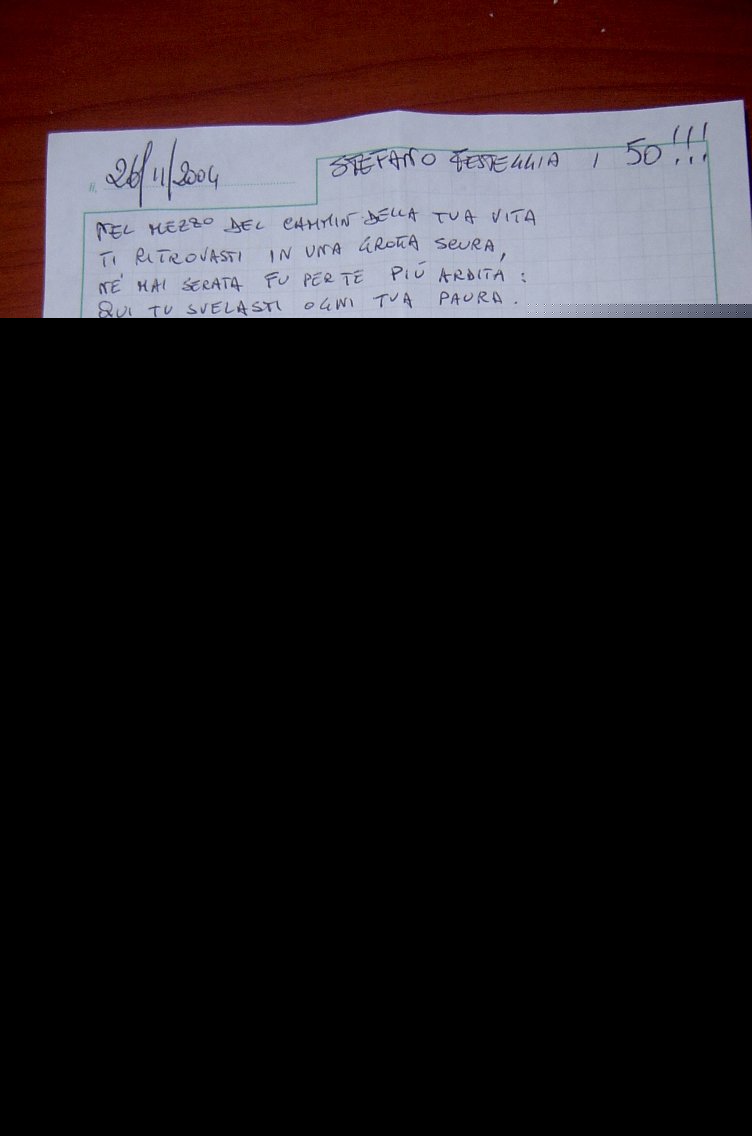 26/11/2004
STEFANO FESTEGGIA I 50!!!
NEL MEZZO DEL CAMMIN DELLA TUA VITA
TI RITROVASTI IN UNA GROTTA SCURA,
NÉ MAI SERATA FU PER TE PIÙ ARDITA:
QUI TU SVELASTI OGNI TUA PAURA.